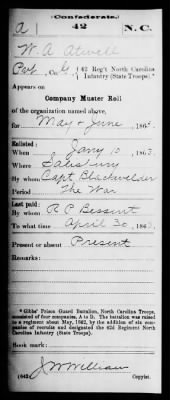 (Confederate.)
A 42 N.C.
W. A. Atwell
Pvt, Co. G, * 42 Reg't North Carolina
Infantry (State Troops).*
Appears on
Company Muster Roll
of the organization named above,
for May & June, 1863.
Enlisted:
When Jany 10, 1863.
Where Salisbury
By whom Capt. Blackwelder
Period The War
Last paid:
By whom R P Bessent
To what time April 30, 1863.
Present or absent Present
Remarks:
*Gibbs' Prison Guard Battalion, North Carolina Troops,
consisted of four companies, A to D. The battalion was raised
to a regiment about May, 1862, by the addition of six com-
panies of recruits and designated the 42d Regiment North
Carolina Infantry (State Troops).
Book mark:
J W William
(642) Copyist.